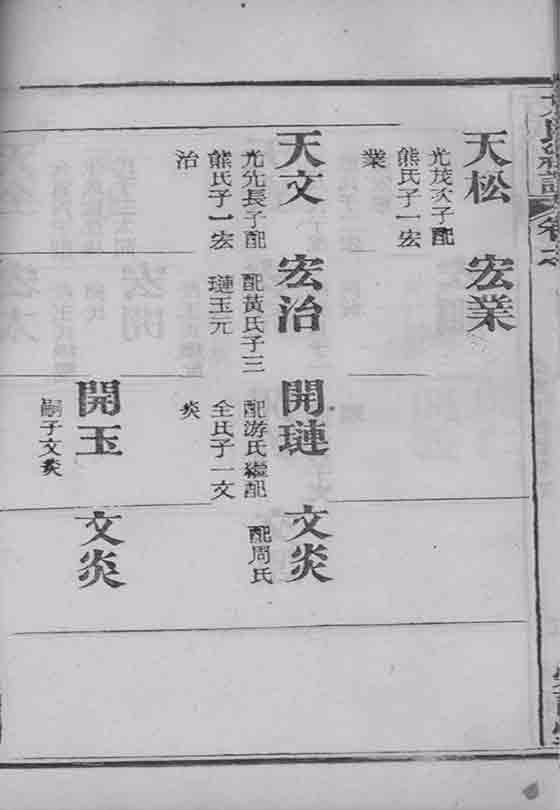 天松
光茂次子配
熊氏子一宏
業
宏業
天文
光先長子配
熊氏子一宏
治
宏治
配黃氏子三
璉玉元
開璉
配游氏繼配
全氏子一文
炎
文炎
配周氏
開玉
嗣子文炎
文炎